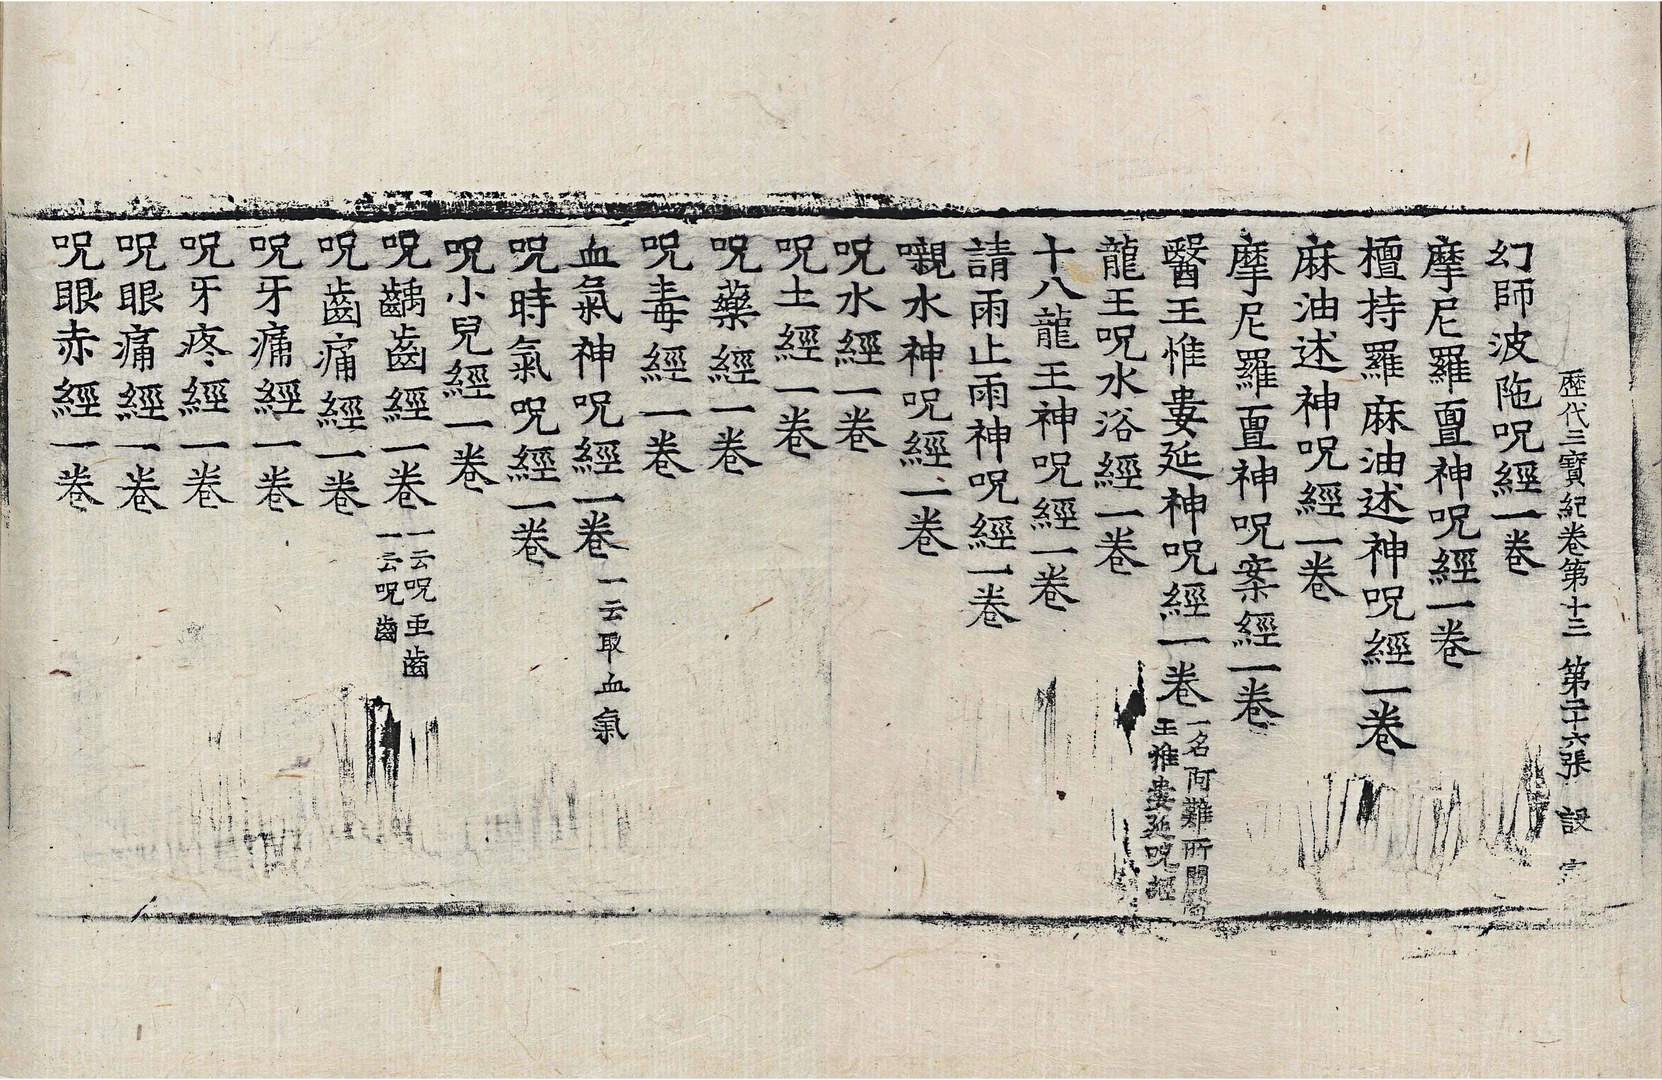 歷代三寶紀卷第十三 第二十六張 設
幻師波陁呪經一卷
摩尼羅亶神呪經一卷
檀持羅麻油述神呪經一卷
麻油述神呪經一卷
摩尼羅亶神呪案經一卷
醫王惟婁延神呪經一卷 一名阿難所問醫
王惟婁延呪經
龍王呪水浴經一卷
十八龍王神呪經一卷
請雨止雨神呪經一卷
嚫水神呪經一卷
呪水經一卷
呪土經一卷
呪藥經一卷
呪毒經一卷
血氣神呪經一卷 一云取血氣
呪時氣呪經一卷
呪小兒經一卷
呪齲齒經一卷 一云呪䖝齒
一云呪齒
呪齒痛經一卷
呪牙痛經一卷
呪牙疼經一卷
呪眼痛經一卷
呪眼赤經一卷